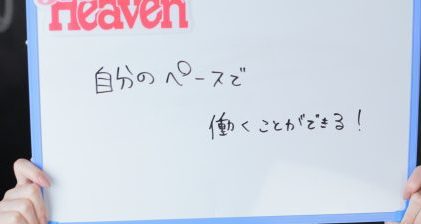 Heaven
自分のペースで
働くことができる!